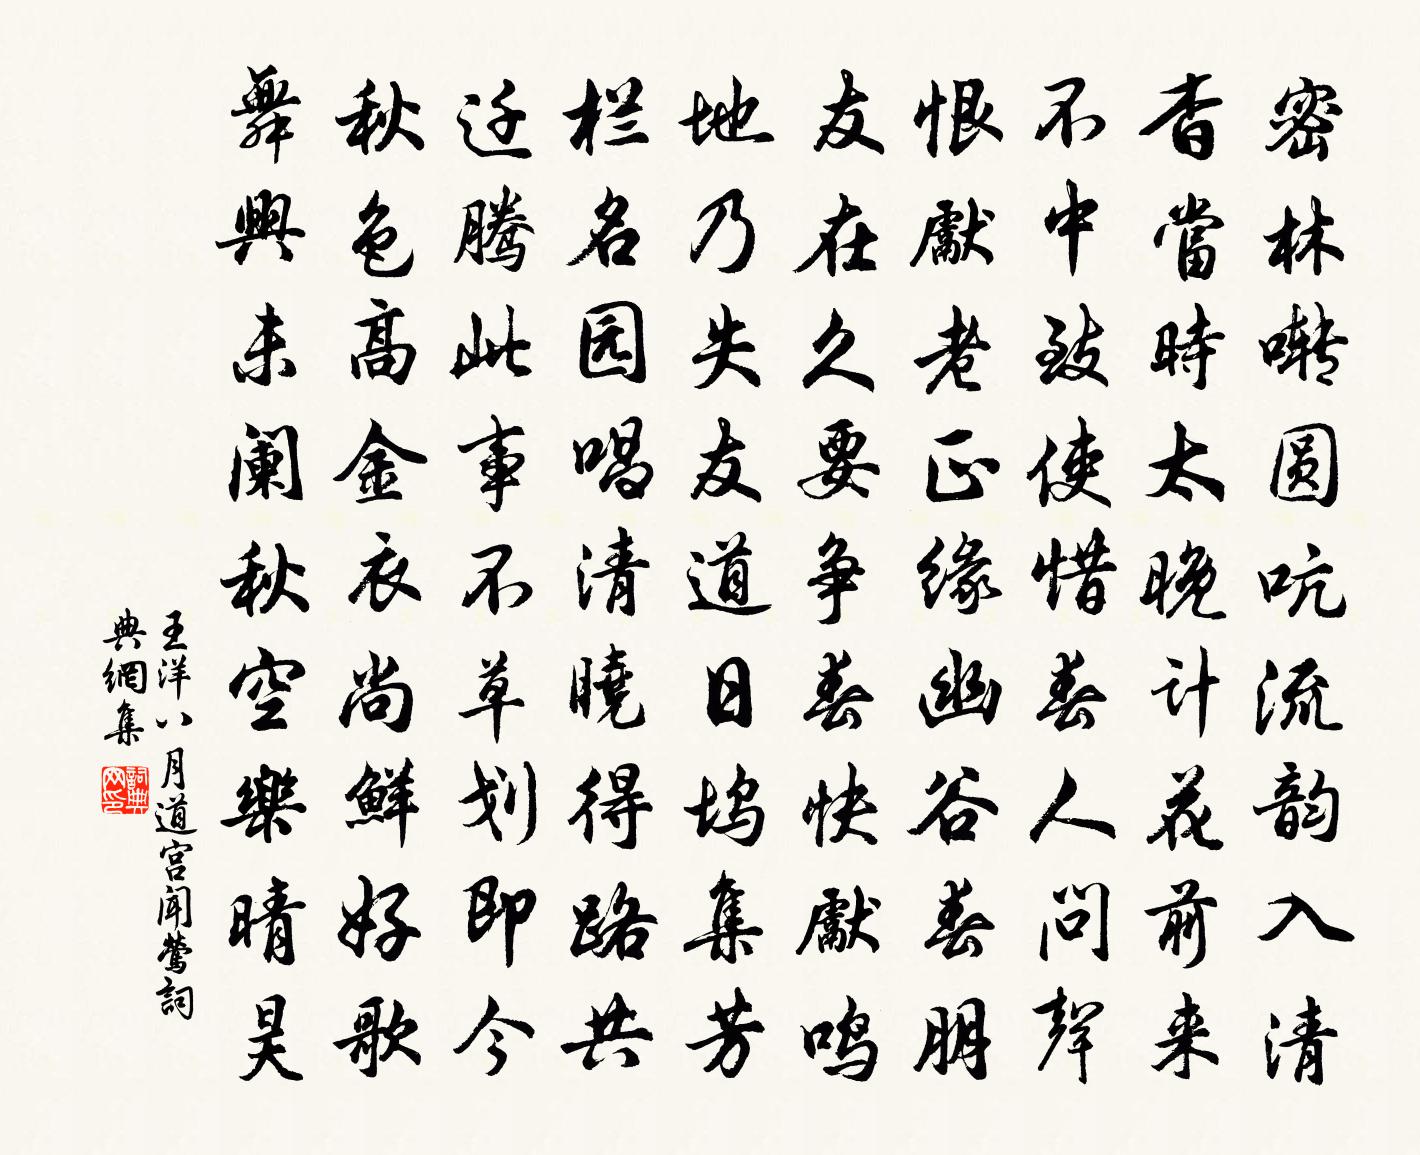 密林啭圆吭流韵入清
杳當時太晚计花前来
不中致使惜春人问聲
恨獻老正缘幽谷春朋
友在久要争春快獻鸣
地乃失友道日坞集芳
栏名园唱清曉得路共
迁腾此事不草划即今
秋色高金衣尚鮮好歌
舞興未阑秋空樂晴昊
王洋八月道宫闻莺詞
典網集
詞典网印